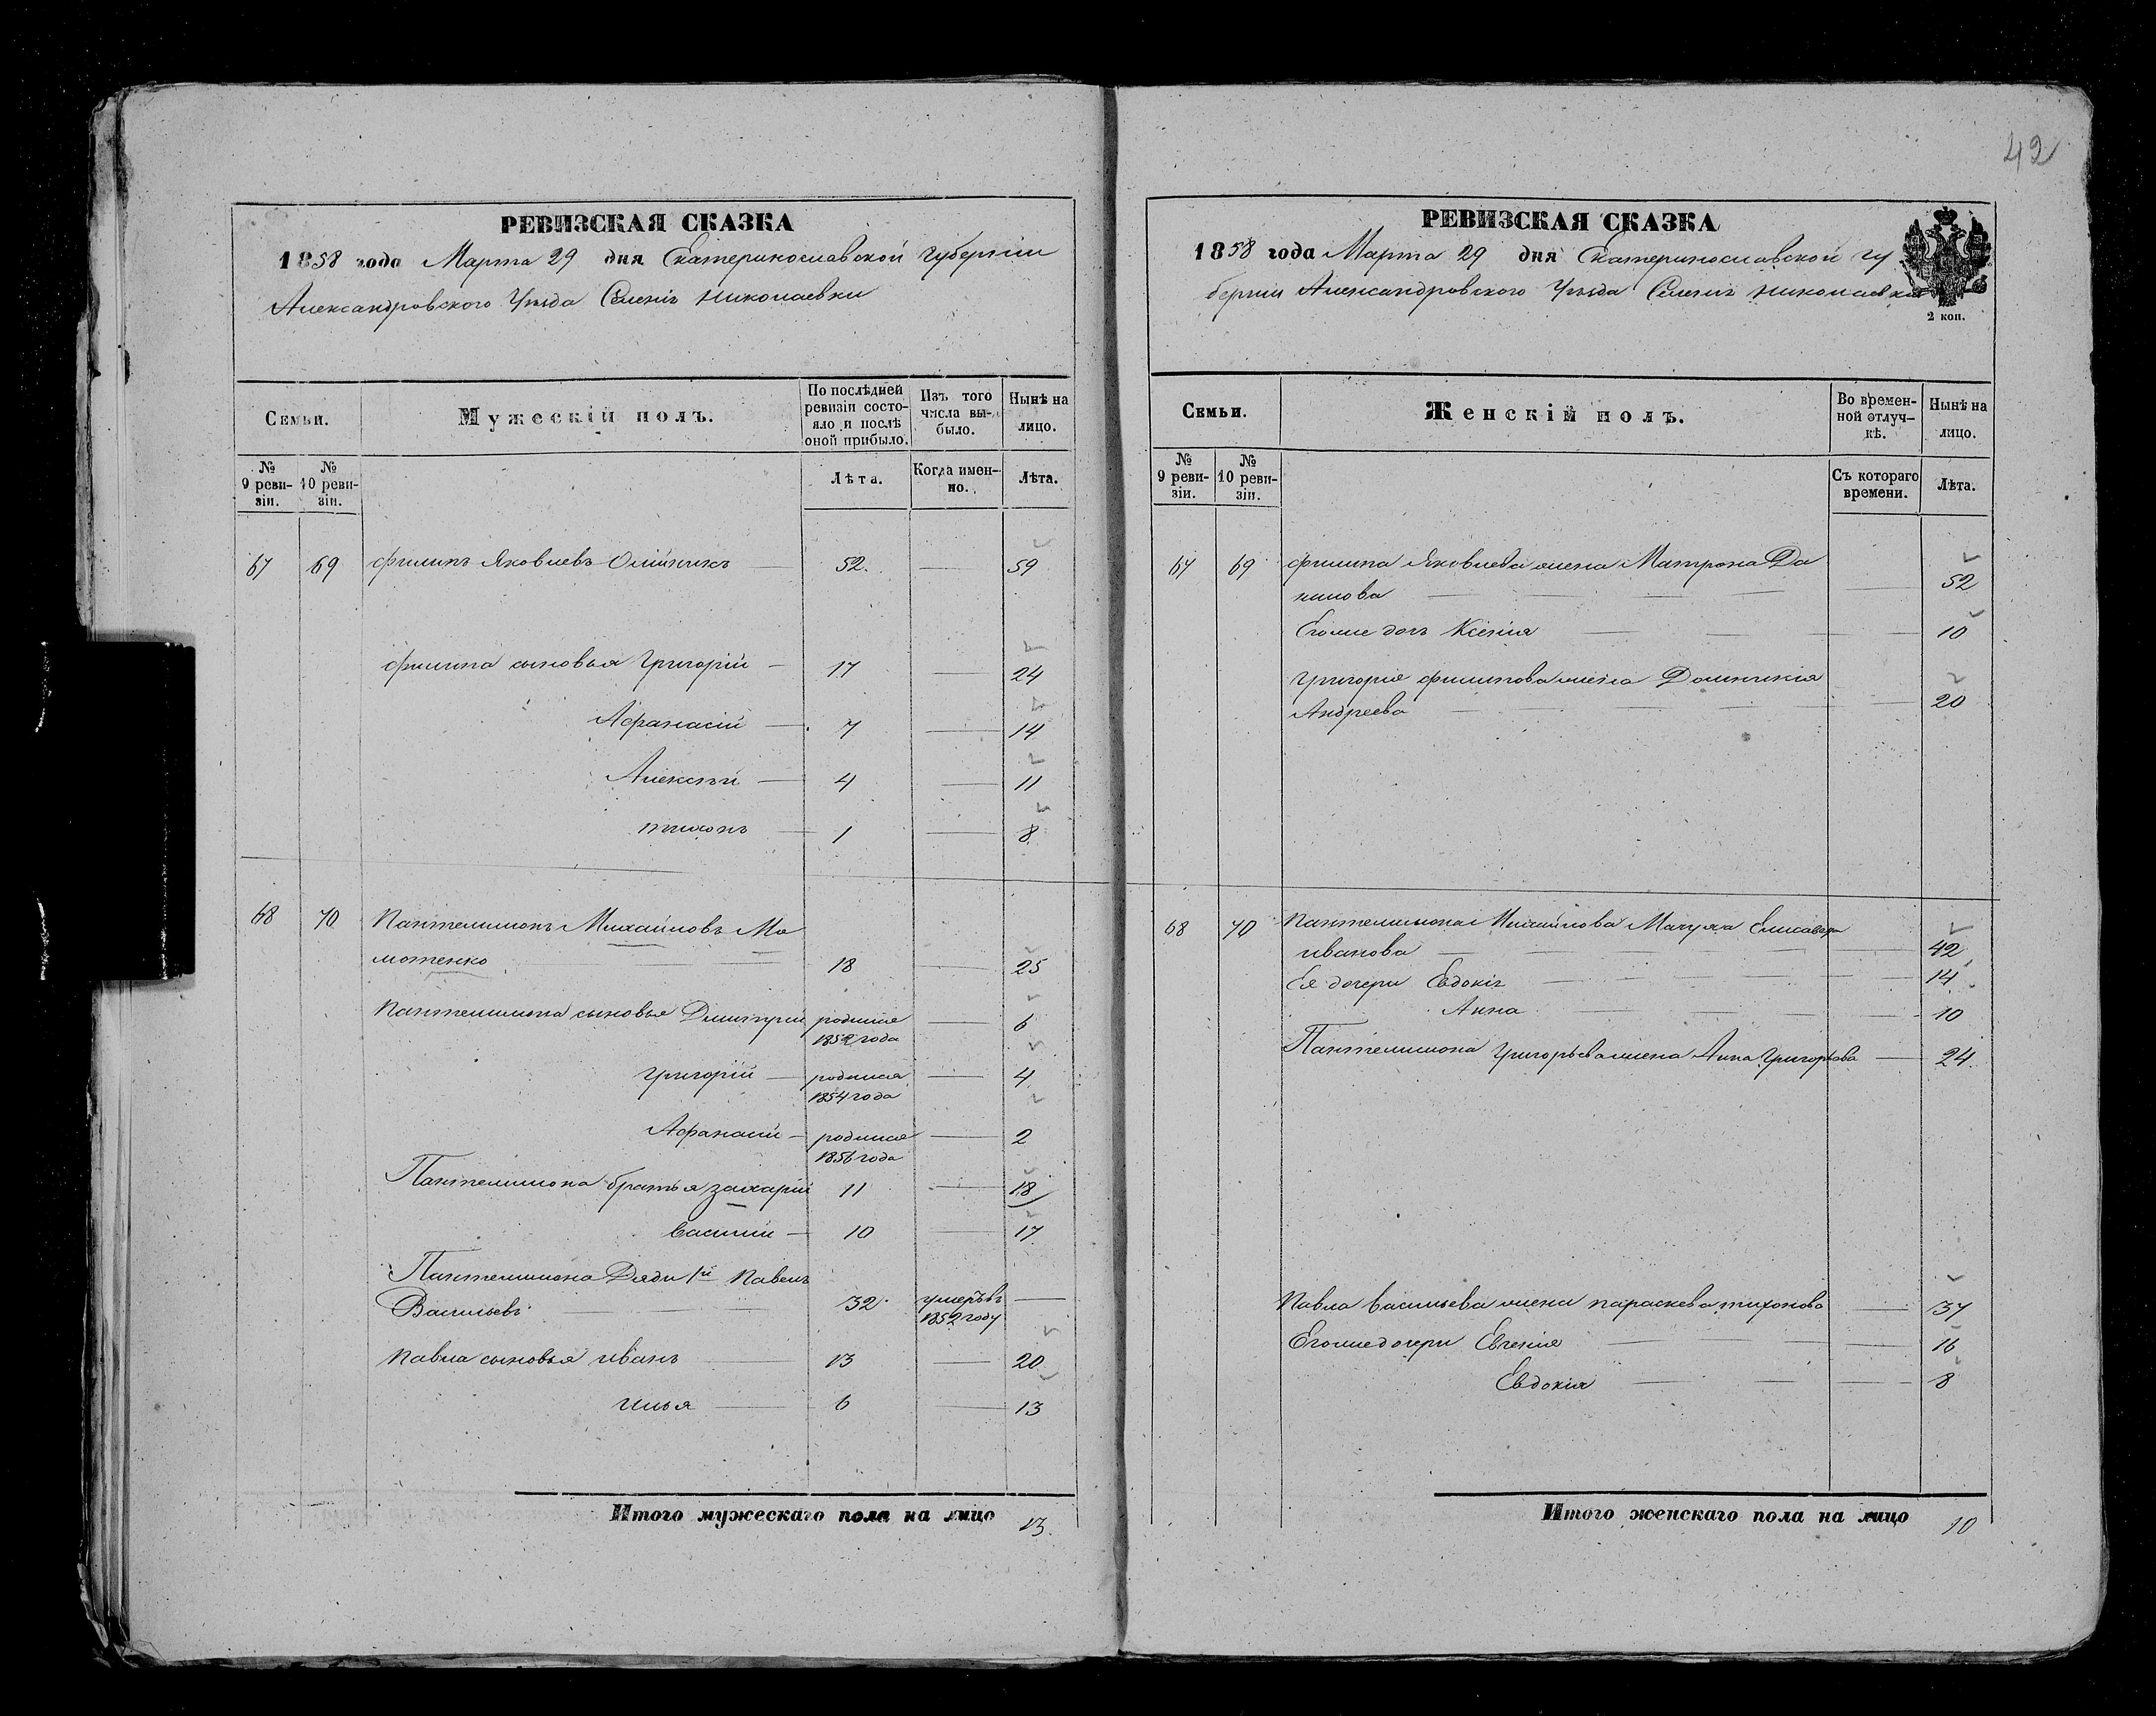 42
РЕВИЗСКАЯ СКАЗКА
1858 года Марта 29 дня Екатеринославской губернии
Александровского Уѣзда Селенія Николаевки
Семьи.
Мужескій полъ.
По послѣдней ревизіи состояло и послѣ оной прибыло.
Изъ того числа выбыло.
Нынѣ на лицо.
№ 9 ревизіи.
№ 10 ревизіи.
Лѣта.
Когда именно.
Лѣта.
67 69 Филипъ Яковлевъ Олійникъ 52. 59
Филипа сыновья Григорій 17 24
Афанасій 7 14
Алексѣй 4 11
Тихонъ 1 8
68 70 Пантелимонъ Михайловъ Мо
мотенко 18 25
Пантелимона сыновья Дмитрій родился 6
1852 года
Григорій родился 4
1854 года
Афанасій родился 2
1856 года
Пантелимона братья Захарій 11 18
Василій 10 17
Пантелимона Дяди 1й Павелъ
Васильевъ 32 умеръ въ
1852 году
Павла сыновья Иванъ 13 20
Илья 6 13
Итого мужескаго пола на лицо 13
РЕВИЗСКАЯ СКАЗКА
1858 года Марта 29 дня Екатеринославской гу
берніи Александровского Уѣзда Селенія Николаевки
2 коп.
Семьи.
Женскій полъ.
Во временной отлучкѣ.
Нынѣ на лицо.
№ 9 ревизіи.
№ 10 ревизіи.
Съ котораго времени.
Лѣта.
67 69 Филипа Яковлева жена Матрона Да
нилова 52
Егоже дочь Ксенія 10
Григорія Филипова жена Домникія
Андреева 20
68 70 Пантелимона Михайлова Мачуха Елисавета
Иванова 42
Ея дочери Евдокія 14
Анна 10
Пантелимона Григорьева жена Анна Григорьева 24
Павла Васильева жена Параскева Тихонова 37
Егоже дочери Евгенія 16
Евдокія 8
Итого женскаго пола на лицо 10